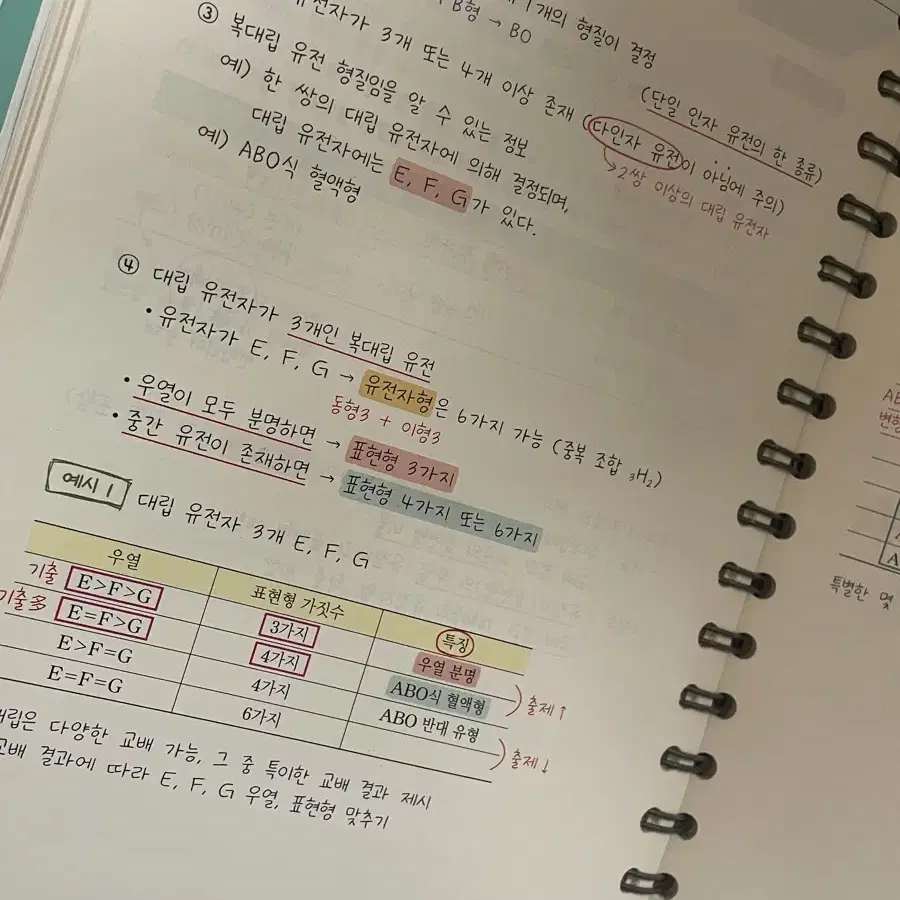 1개의 형질이 결정
B형 → BO
유전자가 3개 또는 4개 이상 존재 (다인자 유전이 아님에 주의)
(단일 인자 유전의 한 종류)
→ 2쌍 이상의 대립 유전자
③ 복대립 유전 형질임을 알 수 있는 정보
예) 한 쌍의 대립 유전자에 의해 결정되며,
대립 유전자에는 E, F, G가 있다.
예) ABO식 혈액형
④ 대립 유전자가 3개인 복대립 유전
• 유전자가 E, F, G → 유전자형은 6가지 가능 (중복 조합 ₃H₂)
동형3 + 이형3
• 우열이 모두 분명하면 → 표현형 3가지
• 중간 유전이 존재하면 → 표현형 4가지 또는 6가지
예시 1 대립 유전자 3개 E, F, G
우열 표현형 가짓수 특징
기출 E>F>G 3가지 우열 분명
기출多 E=F>G 4가지 ABO식 혈액형
출제↑
E>F=G 4가지 ABO 반대 유형
E=F=G 6가지
출제↓
대립은 다양한 교배 가능, 그 중 특이한 교배 결과 제시
교배 결과에 따라 E, F, G 우열, 표현형 맞추기
변형
특별한 몇